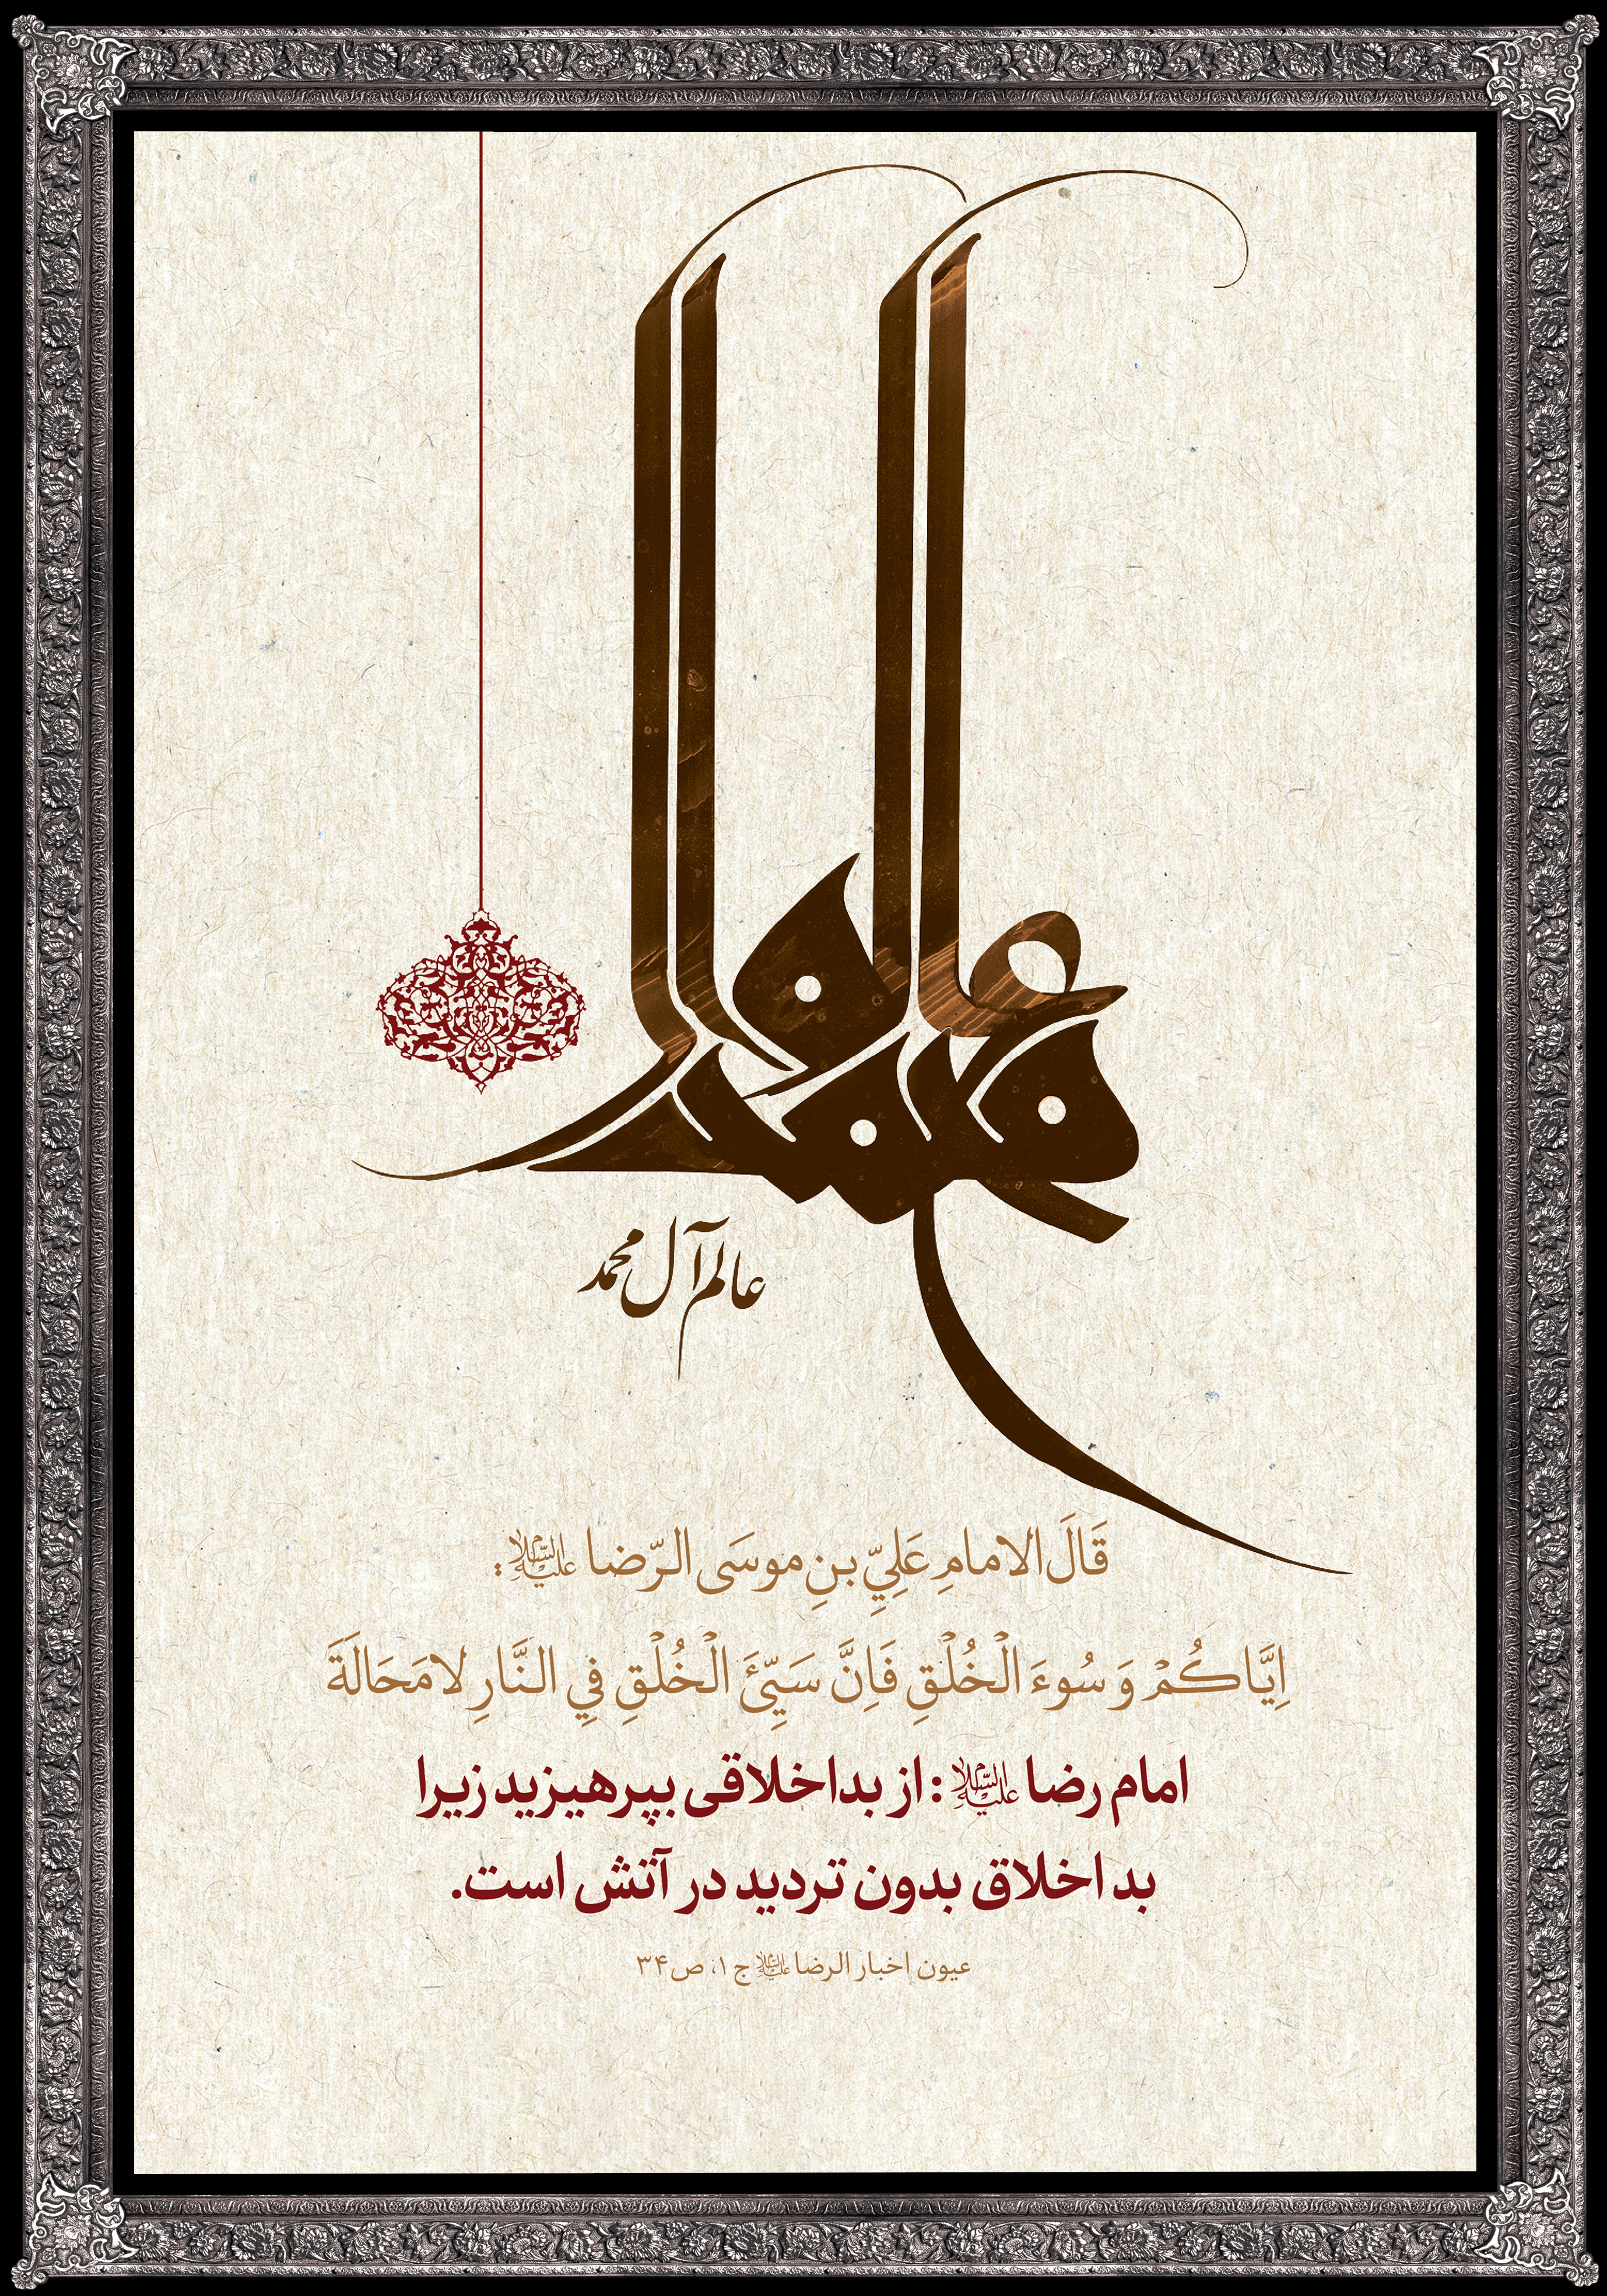 عالم آل محمد
عالم آل محمد
قَالَ الامامِ عَلِيِّ بنِ موسَى الرّضا علیه السلام :
اِيَّاكُمْ وَ سُوءَ الْخُلْقِ فَاِنَّ سَيِّئَ الْخُلْقِ فِي النَّارِ لامَحَالَةَ
امام رضا علیه السلام : از بداخلاقی بپرهیزید زیرا
بد اخلاق بدون تردید در آتش است.
عیون اخبار الرضا علیه السلام ج ۱، ص ۳۴